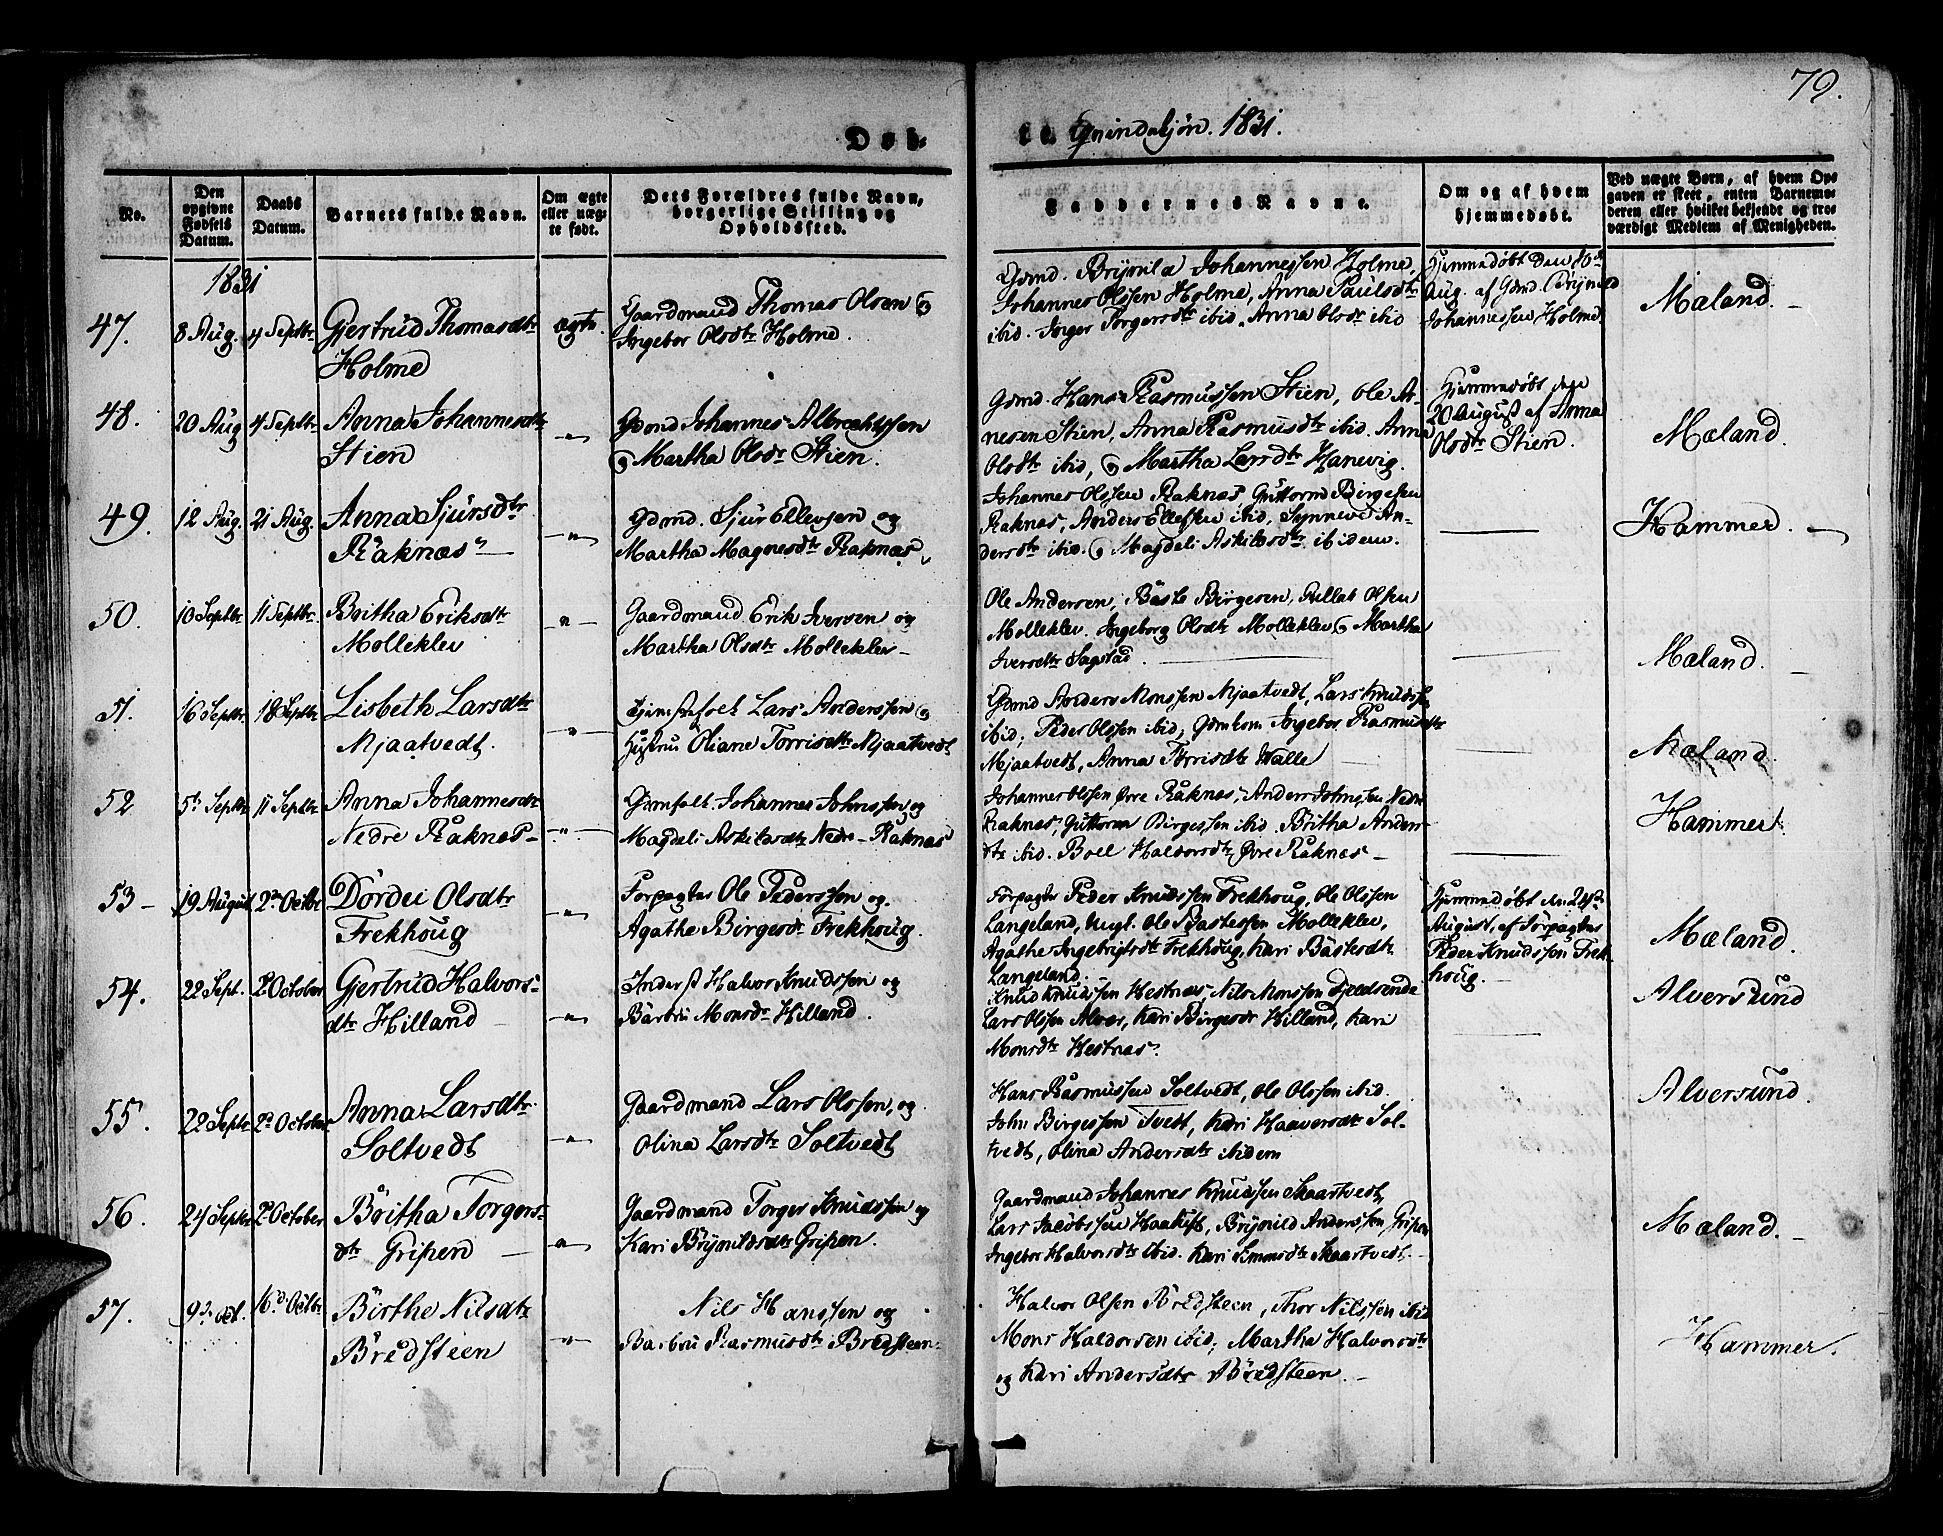 79.
Døb-
te Qvindekjøn. 1831.
No.
Den opgivne Fødsels Datum.
Daabs Datum.
Barnets fulde Navn.
Om ægte eller uægte født.
Dets Forældres fulde Navn, borgerlige Stilling og Opholdssted.
Faddernes Navne.
Om og af hvem hjemmedøbt.
Ved uægte Børn, af hvem Opgaven er skeet, enten Barnemoderen eller hvilket bekjendt og troværdigt Medlem af Menigheden.
1831
47. 8 Aug. 4 Septbr Gjertrud Thomasdtr
Holme
ægte.
Gaardmand Thomas Olsen og
Ingebor Olsdtr Holme.
Gdmd. Brynild Johannessen Holme,
Johannes Olssen Holme, Anna Paulsdtr
ibid. Inger Torgersdtr ibid. Anna Olsdtr ibid
Hjemmedøbt den 10de
Aug. af Gdmd. Brynild
Johannessen Holme.
Mæland.
48. 20 Aug 4 Septbr Anna Johannesdtr
Stien
Gdmd Johannes Albrechtssen
og Martha Olsdtr Stien.
Gdmd. Hans Rasmussen Stien, Ole Ar-
nesen Stien, Anna Rasmusdtr ibid. Anna
Olsdtr ibid, og Martha Larsdtr Hanevig.
Hjemmedøbt den
20 August af Anna
Olsdtr Stien.
Mæland.
49. 12 Aug. 21 Aug. Anna Sjursdtr
Raknæs
Gdmd. Sjur Ellevsen og
Martha Magnesdtr Raknæs
Johannes Olssen Raknæs, Guttorm Birgesen
Raknæs, Anders Ellefsen ibid, Synneve An-
dersdtr ibid. og Magdeli Askilsdtr ibidem.
Hammer.
50. 10 Septbr 11 Septbr Britha Eriksdtr
Molleklev
Gaardmand Erik Iversen og
Martha Olsdtr Molleklev
Ole Andersen, Baste Birgesen, Pillat Olsen
Molleklev. Ingeborg Olsdtr Molleklev, og Martha
Iversdtr Sagstad.
Mæland.
51. 16 Septbr 18 Septbr Lisbeth Larsdtr
Mjaatvedt.
Lars Anderssen og
Hustru Oliane Torrisdtr Mjaatvedt
Gdmd Anders Monssen Mjaatvedt, Lars Knudss.
ibid, Peder Olssen ibid, Gdmkone Ingebor Rasmusdtr
Mjaatvedt, Anna Torrisdtr Walle
Mæland.
52 5te Septbr 11 Septbr Anna Johannesdtr
Nedre Raknæs
Gdmfolk Johannes Johnssen og
Magdeli Askilsdtr Nedre Raknæs
Johannes Olssen Øvre Raknæs, Anders Johnssen Nedre
Raknæs, Guttorm Birgessen ibid. Britha Anders-
dtr ibid. Boel Haldorsdtr Øvre Raknæs
Hammer.
53 19 August 2den Octbr Dordei Olsdtr
Frekhoug
Forpagter Ole Pederssen og
Agathe Birgesdtr Frekhoug.
Forpagter Peder Knudssen Frekhoug, Ole Olssen
Langeland, Ungk. Ole Bastessen Molleklev,
Agathe Ingebrigtsdtr Frekhoug, Kari Bastesdtr
Langeland.
Hjemmedøbt den 24de
August, af Forpagter
Peder Knudssen Frek-
houg.
Mæland.
54. 22 Sept. 2 October Gjertrud Halvors-
dtr Hilland
Inderst Halvor Knudssen og
Barbru Monsdtr Hilland.
Knud Knudssen Hestnæs, Nils Monssen Fjeldsende
Lars Olssen Alver, Kari Birgesdtr Hilland, Kari
Monsdtr Hestnæs.
Alversund
55. 22 Septr 2 October Anna Larsdtr
Soltvedt
Gaardmand Lars Olssen, og
Olina Larsdtr Soltvedt
Hans Rasmussen Soltvedt, Ole Olssen ibid.
John Birgessen Tvedt, Kari Haaversdtr Sol-
tvedt, Olina Andersdtr ibidem
Alversund.
56. 24 Septr 2 October Britha Torgers-
dtr Gripen
Gaardmand Torger Knudssen og
Kari Brynildsdtr Gripen.
Gaardmand Johannes Knudssen Skaartvedt,
Lars Jacobssen Haatuft, Brynild Anderssen Gripen
Ingebor Halvorsdtr ibid. Kari Skaartvedt
Mæland.
57. 9de Oct. 16de Octbr Birthe Nilsdtr
Bredsteen
Nils Hanssen og
Barbru Rasmusdtr Bredsteen
Halvor Olsen Bredsteen, Thor Nilssen ibid
Mons Haldorsen ibid; Martha Halvorsdtr
og Kari Andersdtr Bredsteen.
Hammer.